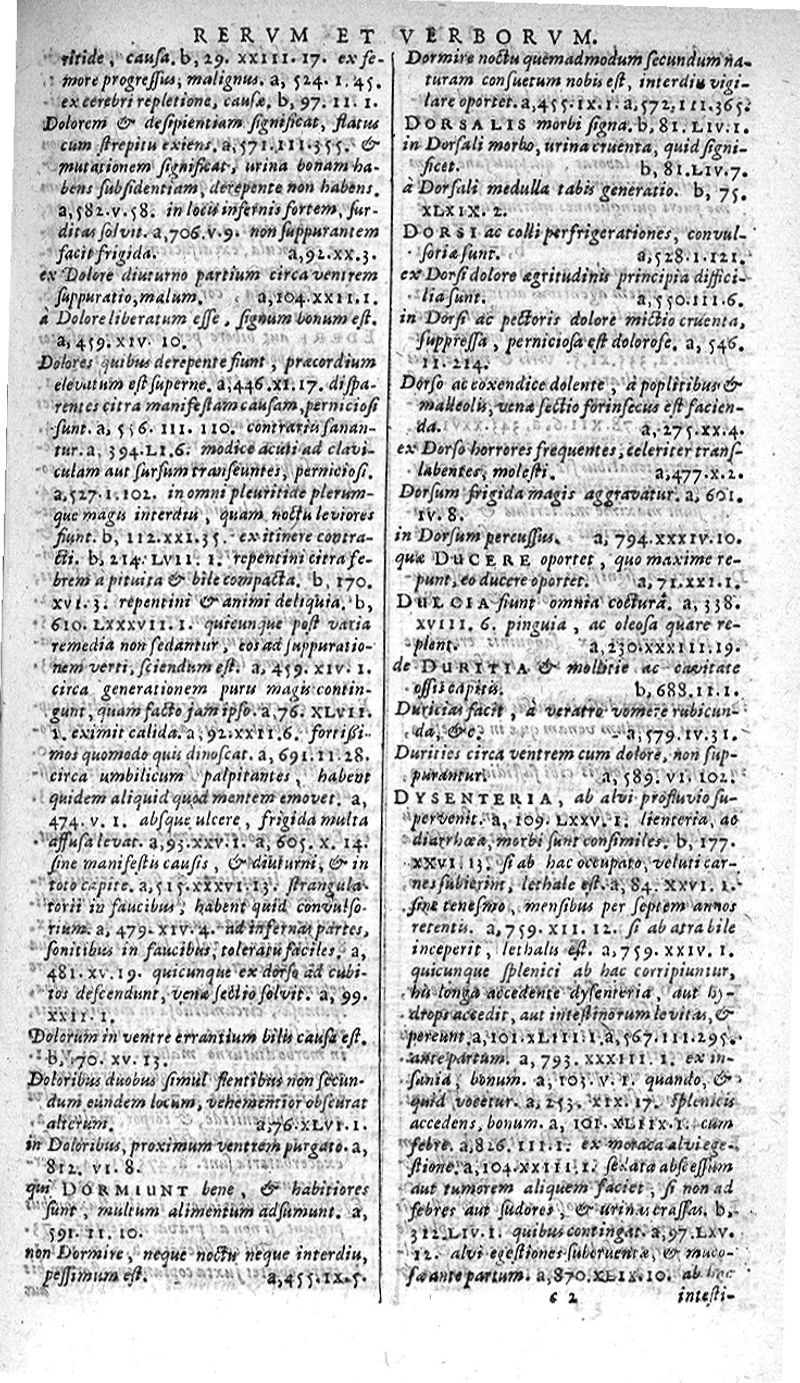 RERVM ET VERBORVM.
ritide, causa. b, 29. XXIII. 17. ex fe-
more progressus, malignus. a, 524. 1. 45.
ex cerebri repletione, causæ. b, 97. 11. 1.
Dolorem & desipientiam significat, flatus
cum strepitu exiens. a, 571. 111. 355. &
mutationem significat, urina bonam ha-
bens subsidentiam, derepente non habens.
a, 582. v. 58. in locis infernis fortem, sur-
ditas solvit. a, 706. v. 9. non suppurantem
facit frigida. a, 92. xx. 3.
ex Dolore diuturno partium circa ventrem
suppuratio, malum. a, 104. XXII. 1.
à Dolore liberatum esse, signum bonum est.
a, 459. XIV. 10.
Dolores quibus derepente fiunt, præcordium
elevatum est superne. a, 446. XI. 17. dispa-
rentes citra manifestam causam, perniciosi
sunt. a, 556. III. 110. contrariis sanan-
tur. a, 394. LI. 6. modice acuti ad clavi-
culam aut sursum transeuntes, perniciosi.
a, 527. 1. 102. in omni pleuritide plerum-
que magis interdiu, quam noctu leviores
fiunt. b, 112. XXI. 35. ex itinere contra-
cti. b, 214. LVII. 1. repentini citra fe-
brem a pituita & bile compacta. b, 170.
XVI. 3. repentini & animi deliquia. b,
610. LXXXVII. 1. quicunque post varia
remedia non sedantur, eos ad suppuratio-
nem verti, sciendum est. a, 459. XIV. 1.
circa generationem puris magis contin-
gunt, quam facto jam ipso. a, 76. XLVII.
1. eximit calida. a, 92. XXII. 6. fortissi-
mos quomodo quis dinoscat. a, 691. 11. 28.
circa umbilicum palpitantes, habent
quidem aliquid quod mentem emovet. a,
474. v. 1. absque ulcere, frigida multa
affusa levat. a, 93. XXV. 1. a, 605. x. 14.
sine manifestis causis, & diuturni, & in
toto capite. a, 515. XXXVI. 13. strangula-
torii in faucibus, habent quid convulso-
rium. a, 479. XIV. 4. ad infernas partes,
sonitibus in faucibus, toleratu faciles. a,
481. XV. 19. quicunque ex dorso ad cubi-
tos descendunt, venæ sectio solvit. a, 99.
XXII. 1.
Dolorum in ventre errantium bilis causa est.
b, 170. XV. 13.
Doloribus duobus simul flentibus non secun-
dum eundem locum, vehementior obscurat
alterum. a, 76. XLVI. 1.
in Doloribus, proximum ventrem purgato. a,
812. VI. 8.
qui DORMIUNT bene, & habitiores
sunt, multum alimentum adsumunt. a,
591. 11. 10.
non Dormire, neque noctu neque interdiu,
pessimum est. a, 455. IX. 5.
Dormire noctu quemadmodum secundum na-
turam consuetum nobis est, interdiu vigi-
lare oportet. a, 455. IX. 1. a, 572, 111. 365.
DORSALIS morbi signa. b, 81. LIV. 1.
in Dorsali morbo, urina cruenta, quid signi-
ficet. b, 81. LIV. 7.
à Dorsali medulla tabis generatio. b, 75.
XLIX. 2.
DORSI ac colli perfrigerationes, convul-
soriæ sunt. a, 528. 1. 121.
ex Dorsi dolore ægritudinis principia diffici-
lia sunt. a, 550. III. 6.
in Dorsi ac pectoris dolore mictio cruenta,
suppressa, perniciosa est dolorose. a, 546.
11. 214.
Dorso ac coxendice dolente, à poplitibus &
malleolis, venæ sectio forinsecus est facien-
da. a, 275. XX. 4.
ex Dorso horrores frequentes, celeriter trans-
labentes, molesti. a, 477. X. 2.
Dorsum frigida magis aggravatur. a, 601.
IV. 8.
in Dorsum percussus. a, 794. XXXIV. 10.
quæ DUCERE oportet, quo maxime re-
punt, eo ducere oportet. a, 71. XXI. 1.
DULCIA fiunt omnia coctura. a, 338.
XVIII. 6. pinguia, ac oleosa quare re-
plent. a, 230. XXXIII. 19.
de DURITIA & mollitie ac cavitate
ossis capitis. b, 688. 11. 1.
Duricias facit, à veratro vomere rubicun-
da, &c. a, 579. IV. 31.
Durities circa ventrem cum dolore, non sup-
purantur. a, 589. VI. 102.
DYSENTERIA, ab alvi profluvio su-
pervenit. a, 109. LXXV. 1. lienteria, ac
diarrhœa, morbi sunt consimiles. b, 177.
XXVI. 13. si ab hac occupato, veluti car-
nes subierint, lethale est. a, 84. XXVI. 1.
sine tenesmo, mensibus per septem annos
retentis. a, 759. XII. 12. si ab atra bile
inceperit, lethalis est. a, 759. XXIV. 1.
quicunque splenici ab hac corripiuntur,
his longa accedente dysenteria, aut hy-
drops accedit, aut intestinorum levitas, &
pereunt. a, 101. XLIII. 1. a, 567. III. 295.
ante partum. a, 793. XXXIII. 1. ex in-
sania, bonum. a, 103. v. 1. quando, &
quid vocetur. a, 253. XIX. 17. splenicis
accedens, bonum. a, 101. XLIIX. 1. cum
febre. a, 826. III. 1. ex alvi ege-
stione. a, 104. XXIIII. 1. sedata abscessum
aut tumorem aliquem faciet, si non ad
febres aut sudores, & urinas crassas. b,
312. LIV. 1. quibus contingat. a, 97. LXV.
12. alvi egestiones subcruentæ, & muco-
sæ ante partum. a, 870. XLIX. 10. ab hac
6 2 intesti-